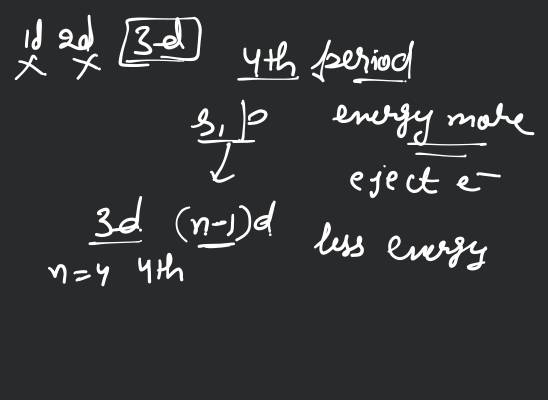 1d 2d 3-d
x x
4th period
s, p
energy more
eject e-
3d (n-1)d
less energy
n=4 4th